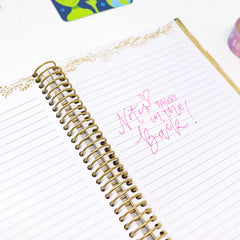 Notes
PAGES
in the
Back!